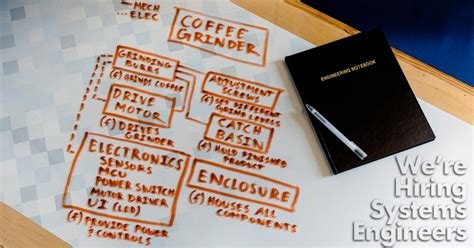 — MECH
-- ELEC
COFFEE
GRINDER
GRINDING
BURRS
(f) GRINDS COFFEE
ADJUSTMENT
SCREWS
(f) SET DIFFERENT
GRIND LEVELS
DRIVE
MOTOR
(f) DRIVES
GRINDER
CATCH
BASIN
(f) HOLD FINISHED
PRODUCT
ELECTRONICS
SENSORS
MCU
POWER SWITCH
MOTOR DRIVER
UI (LCD)
(f) PROVIDE POWER
& CONTROLS
ENCLOSURE
(f) HOUSES ALL
COMPONENTS
ENGINEERING NOTEBOOK
We're
Hiring
Systems
Engineers